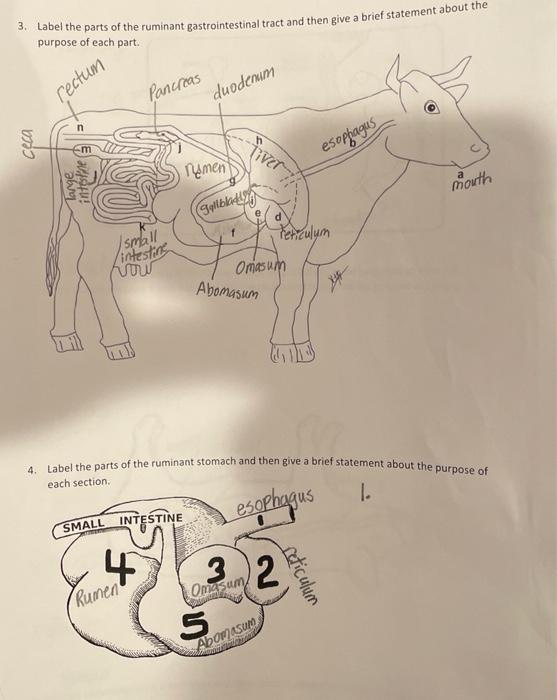 3. Label the parts of the ruminant gastrointestinal tract and then give a brief statement about the
purpose of each part.
rectum
Pancreas
duodenum
ceca
n
m
l
large
intestine
j
rumen
h
liver
esophagus
b
a
mouth
g
gallbladder
i
e
d
reticulum
f
k
small
intestine
Omasum
Abomasum
4. Label the parts of the ruminant stomach and then give a brief statement about the purpose of
each section.
esophagus
1.
SMALL INTESTINE
1
4
Rumen
3
Omasum
2
reticulum
5
Abomasum